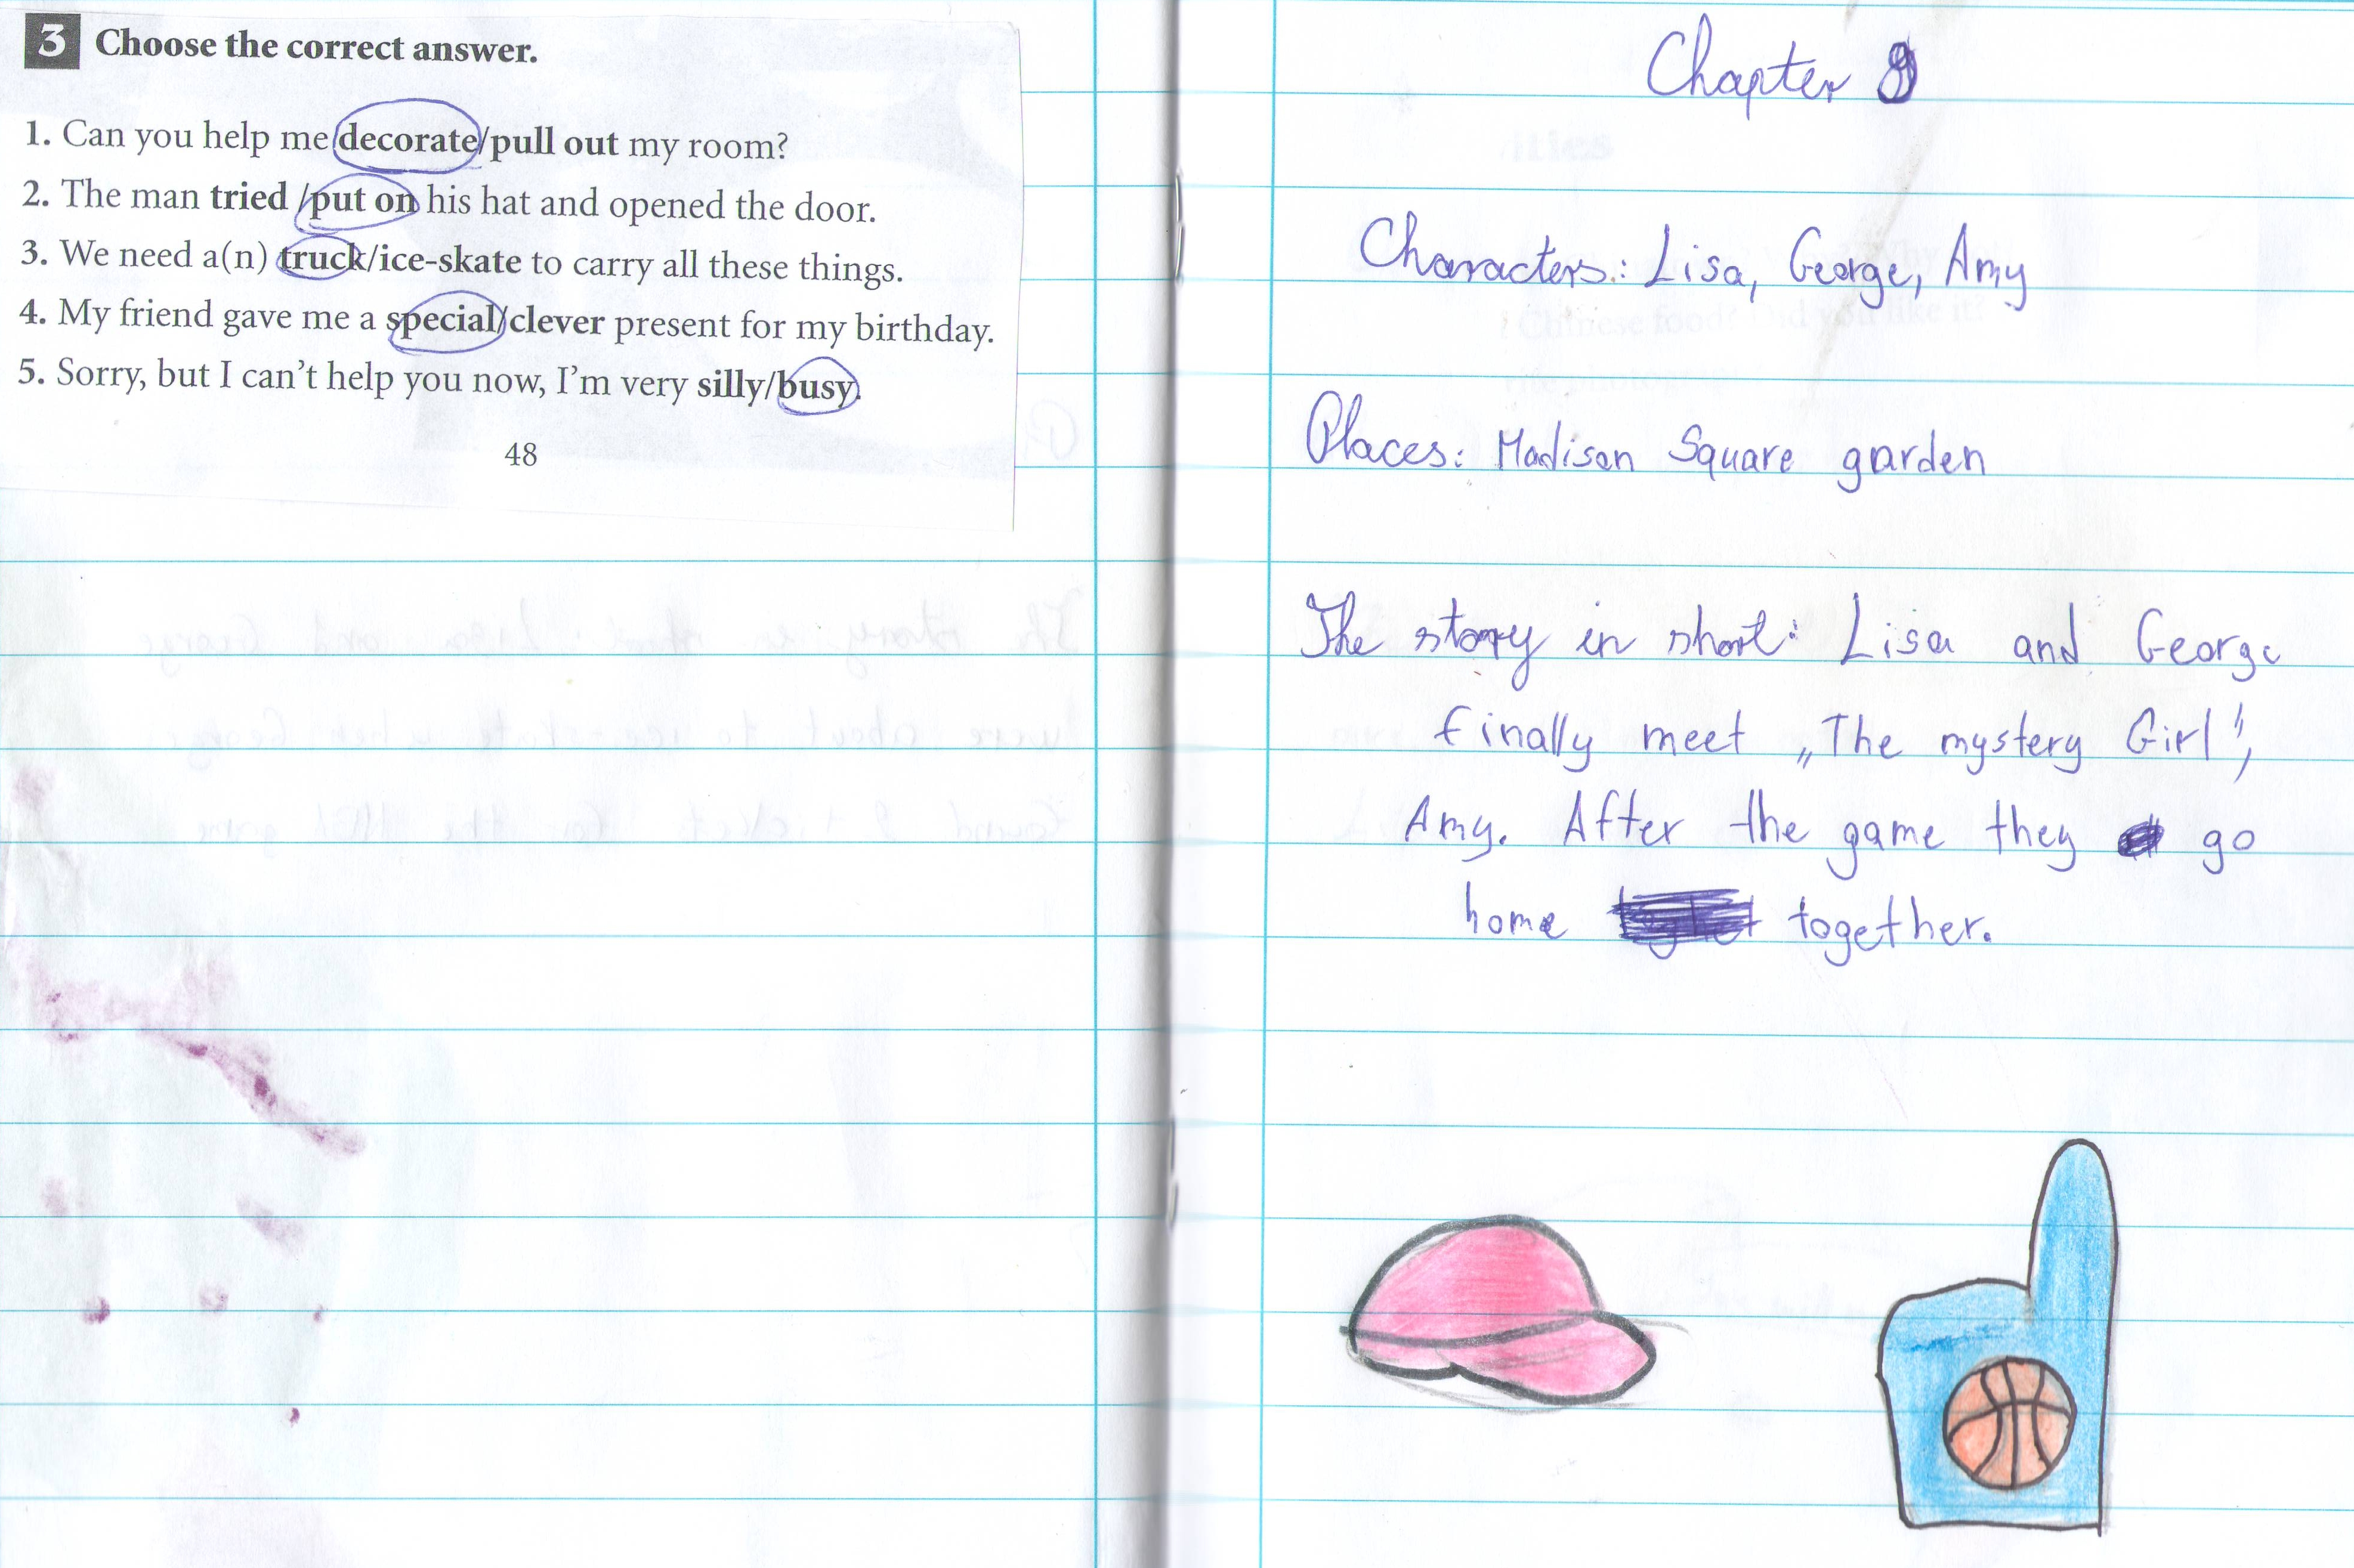 3 Choose the correct answer.
1. Can you help me decorate/pull out my room?
2. The man tried /put on his hat and opened the door.
3. We need a(n) truck/ice-skate to carry all these things.
4. My friend gave me a special/clever present for my birthday.
5. Sorry, but I can't help you now, I'm very silly/busy.
48
Chapter
Characters: Lisa, George, Amy
Places: Madison Square garden
The story in short: Lisa and George
finally meet „The mystery Girl",
Amy. After the game they go
home together.